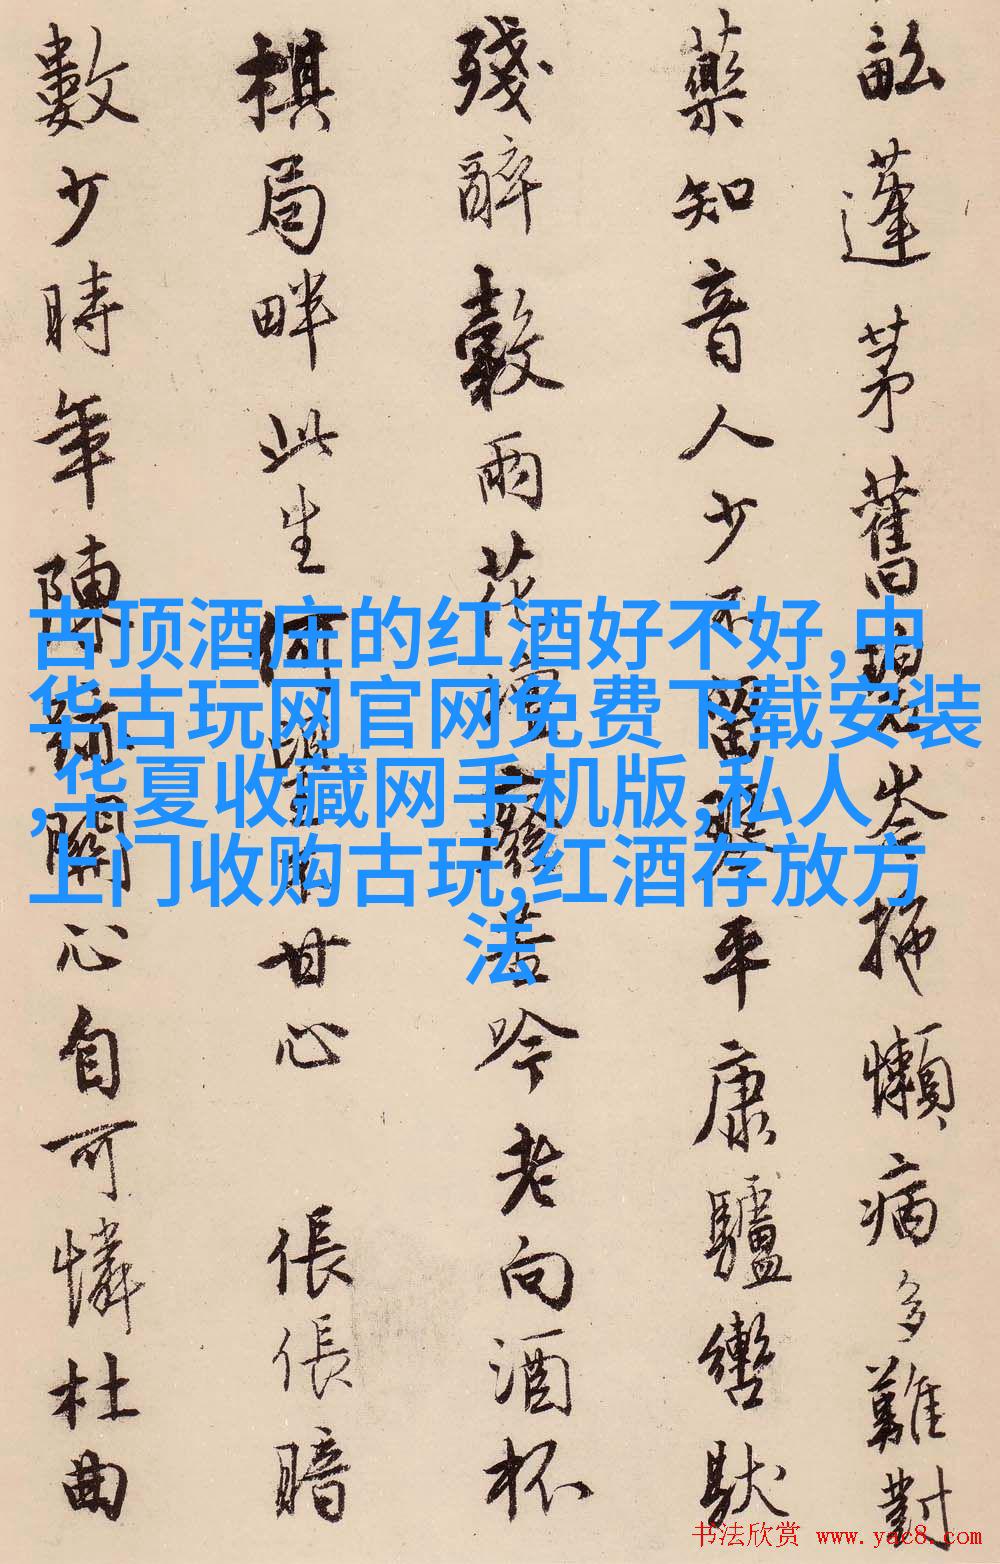 畝蓬茅舊碧岑拖懶病多難對
藥知音人少不留琴平康驢轡馱
殘醉穀雨花苦吟老向酒杯
棋局畔此生何甘心 悵悵暗
數少時年陳跡關心自可憐杜曲
古顶酒庄的红酒好不好,中
华古玩网官网免费下载安装
,华夏收藏网手机版,私人
上门收购古玩,红酒存放方
法
书法欣赏 www.yac8.com